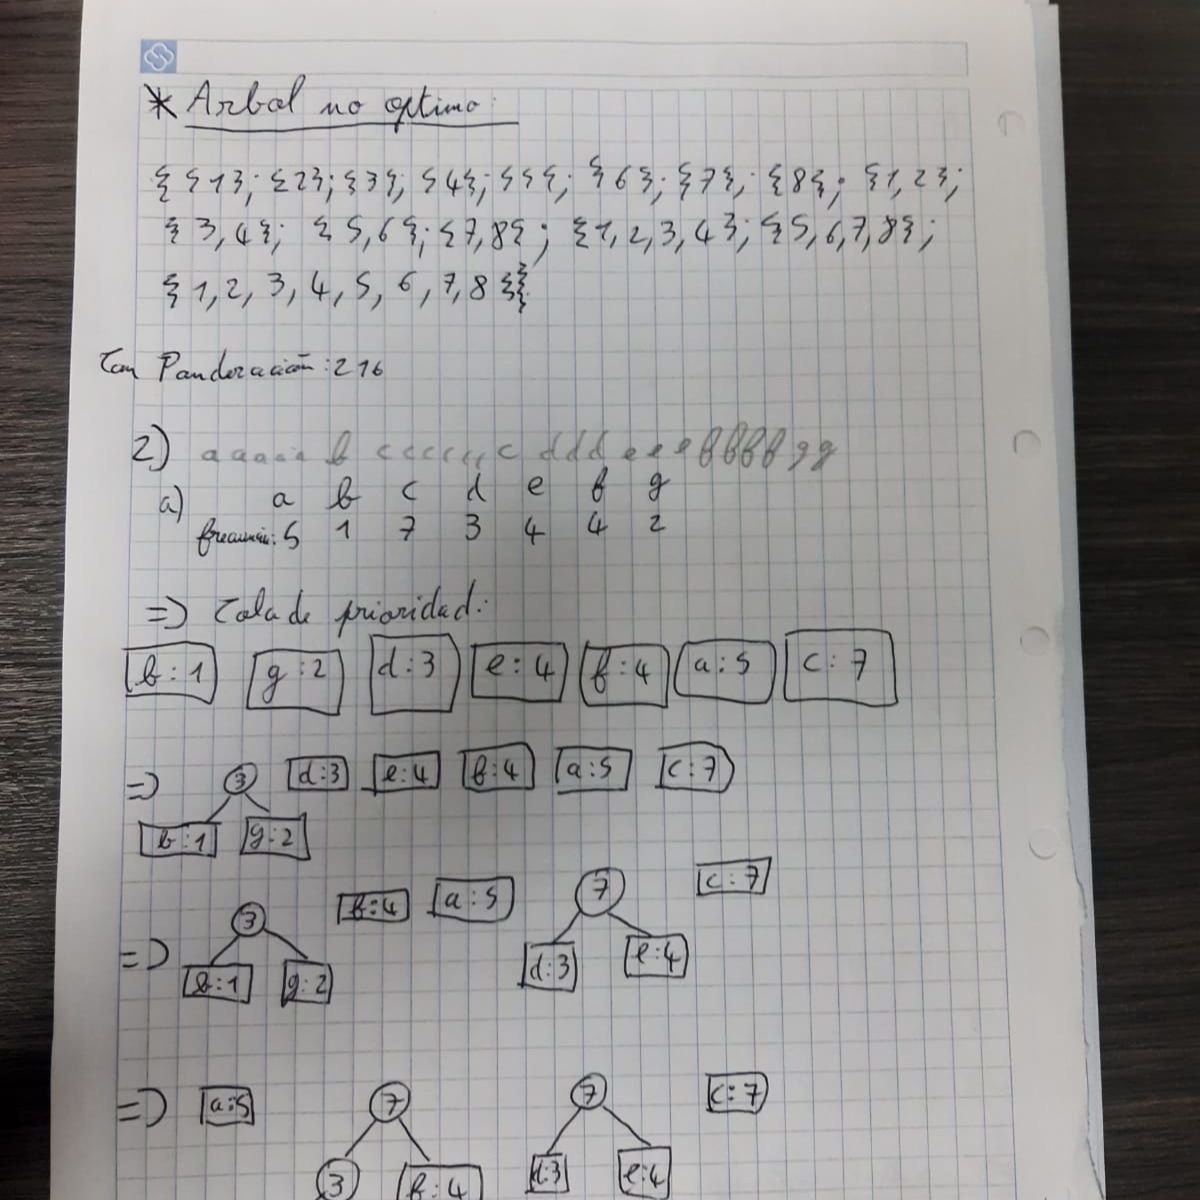 * Arbol no optimo:
{ {1}; {2}; {3}; {4}; {5}; {6}; {7}; {8}; {1,2};
{3,4}; {5,6}; {7,8}; {1,2,3,4}; {5,6,7,8};
{1,2,3,4,5,6,7,8}}
Panderación: 216
2) aaaaa b ccccccc ddd eee ffff gg
a) a b c d e f g
5 1 7 3 4 4 2
=> Cola de prioridad:
b:1 g:2 d:3 e:4 f:4 a:5 c:7
=> 3 d:3 e:4 f:4 a:5 c:7
b:1 g:2
=> 3 f:4 a:5 7 c:7
b:1 g:2 d:3 e:4
=> a:5 7 7 c:7
3 f:4 d:3 e:4